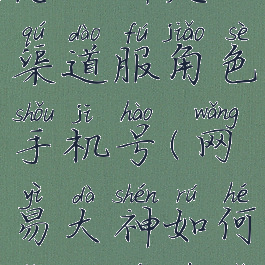 qú dào fú jiǎo sè
渠道服角色
shǒu jī hào wǎng
手机号(网
yì dà shén rú hé
易大神如何